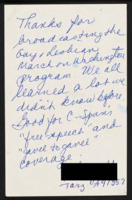 Thanks for
broadcasting the
Gay & Lesbian
March on Washington
program. We all
learned a lot we
didn't know before.
Good for C-Span's
"free speech" and
"gavel to gavel"
coverage.